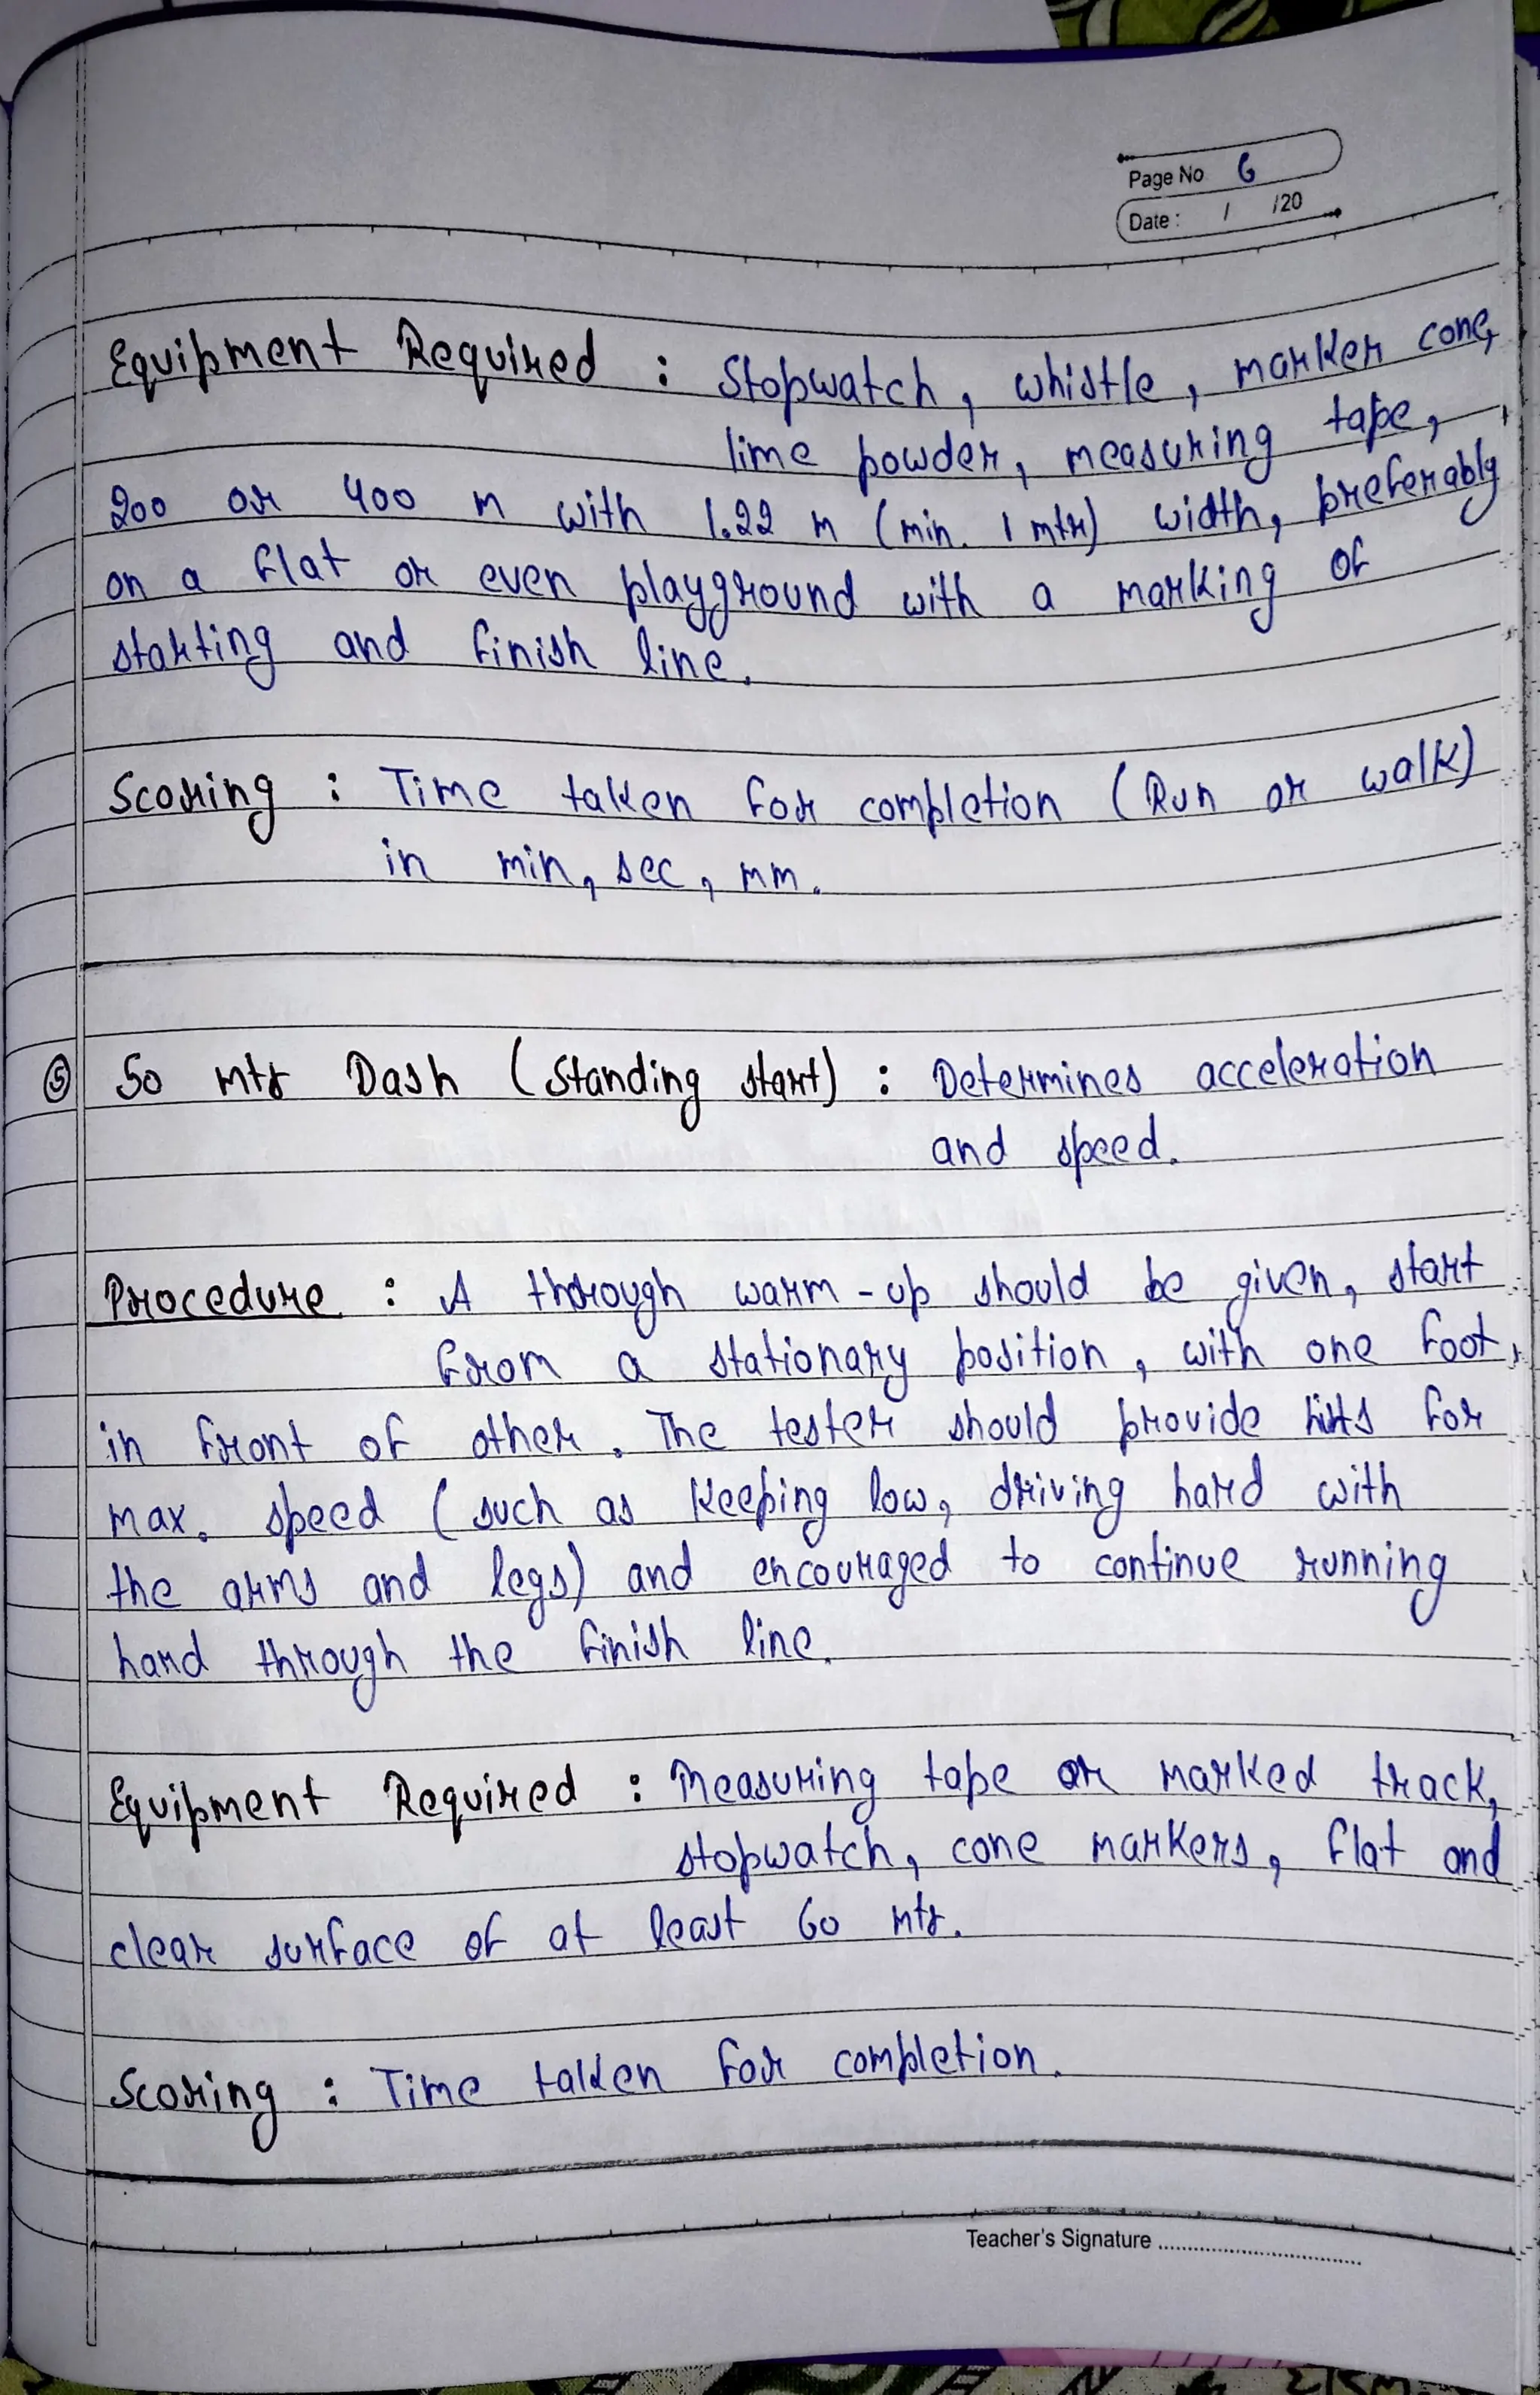 Page No 6
Date : / /20
Equipment Required : Stopwatch, whistle, marker cone,
lime powder, measuring tape,
200 or 400 m with 1.22 m (min. 1 mtr) width, preferably
on a flat or even playground with a marking of
starting and finish line.
Scoring : Time taken for completion (Run or walk)
in min, sec, mm.
⑤ 50 mtr Dash (Standing start) : Determines acceleration
and speed.
Procedure : A thorough warm-up should be given, start
from a stationary position, with one foot
in front of other. The tester should provide hints for
max. speed (such as keeping low, driving hard with
the arms and legs) and encouraged to continue running
hard through the finish line.
Equipment Required : Measuring tape or marked track,
stopwatch, cone markers, flat and
clear surface of at least 60 mtr.
Scoring : Time taken for completion.
Teacher's Signature